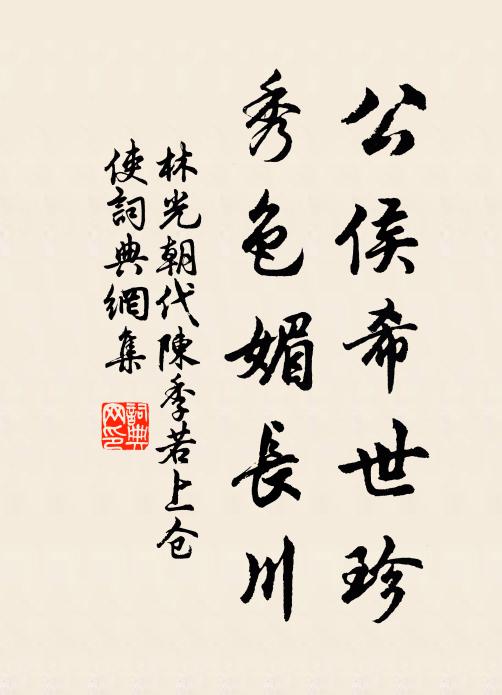 公侯希世珍
秀色媚長川
林光朝代陳季若上仓
使詞典網集
詞典
网印